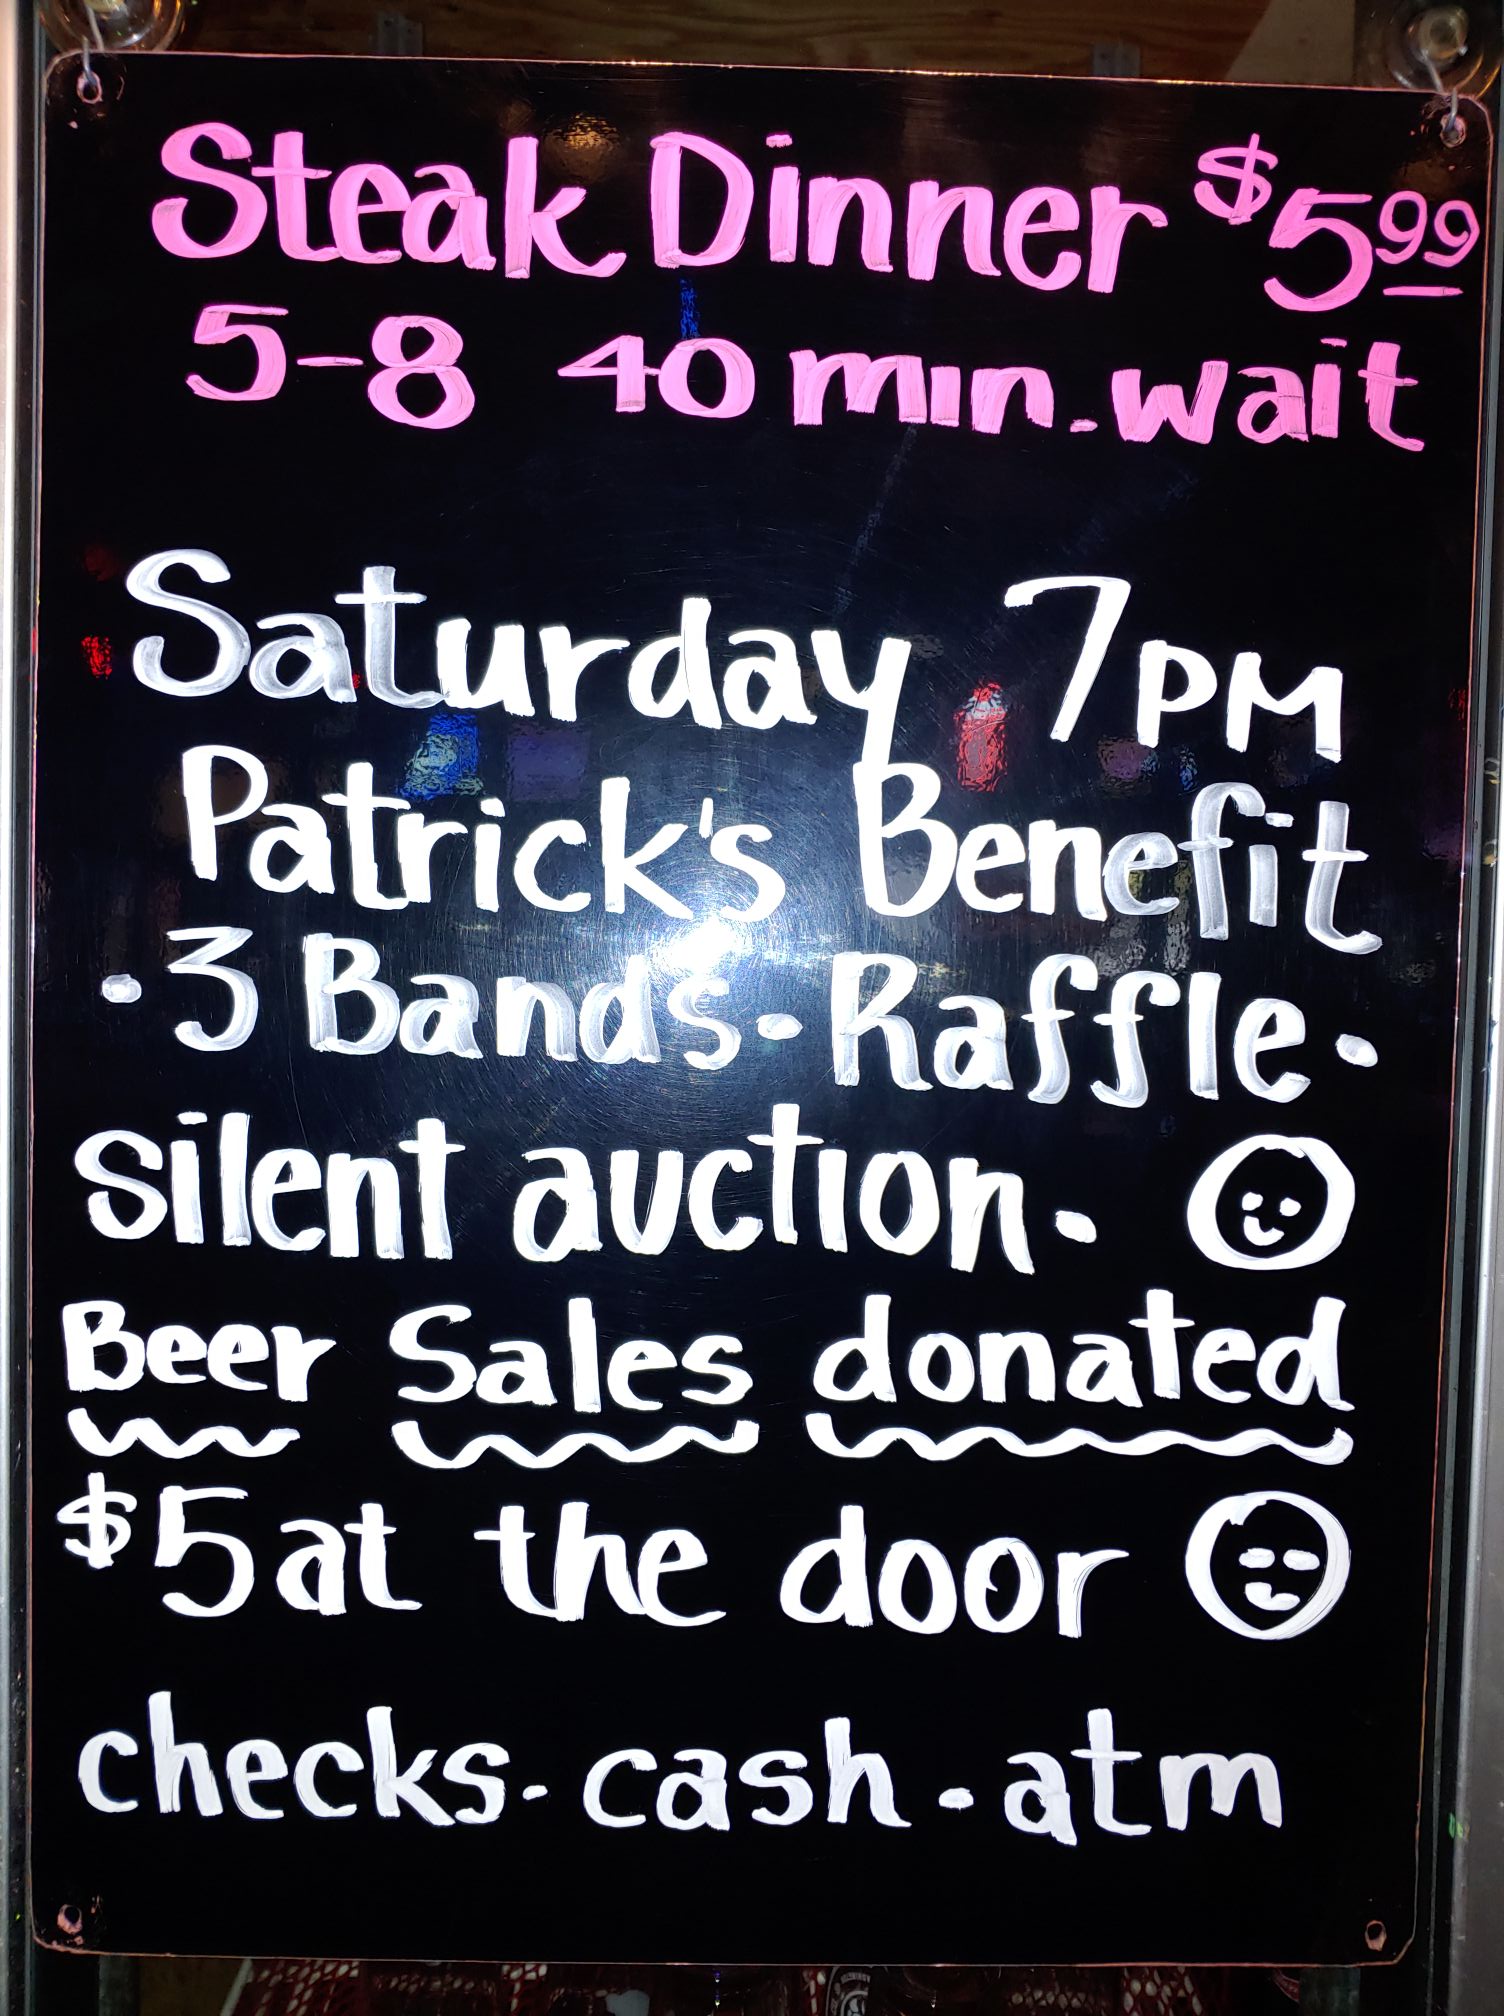 Steak Dinner $5.99
5-8 40 min. wait
Saturday 7PM
Patrick's Benefit
· 3 Bands · Raffle ·
silent auction ·
Beer Sales donated
$5 at the door
checks · cash · atm